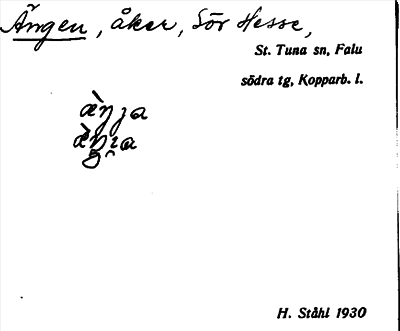 Ängen, åker, Sör Hesse,
St. Tuna sn, Falu
södra tg, Kopparb. l.
H. Ståhl 1930